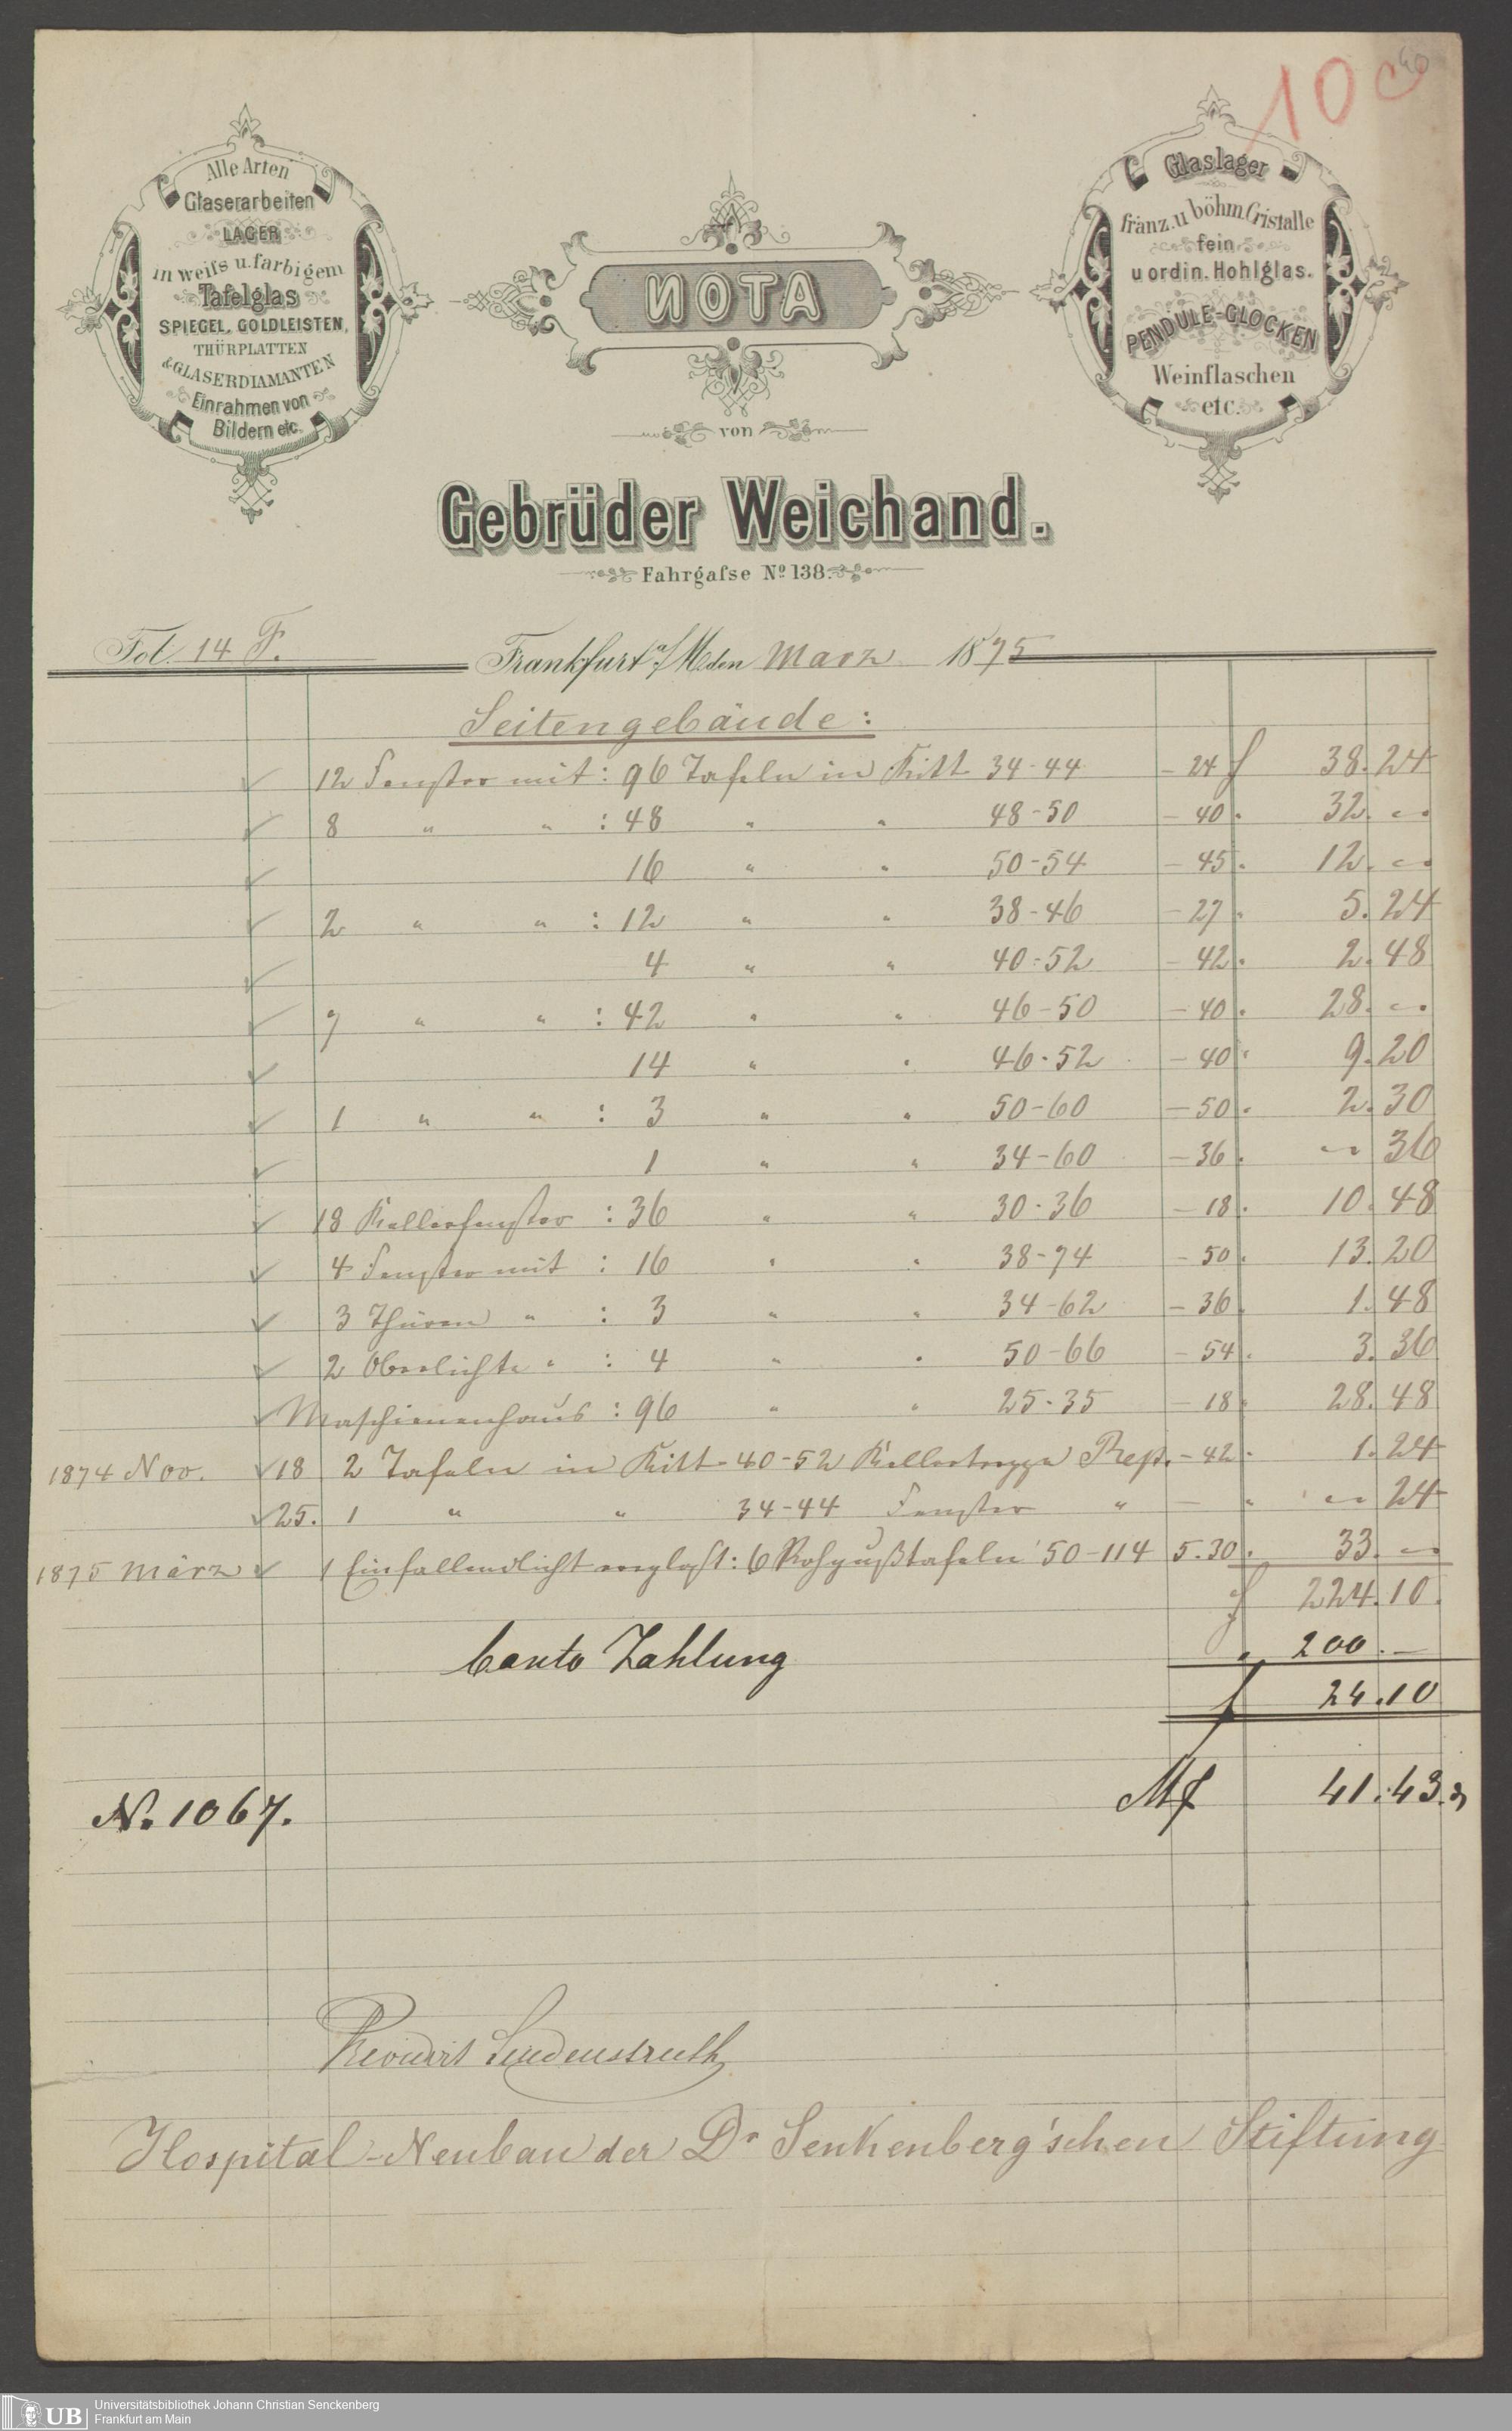 10 c
40
Alle Arten
Glaserarbeiten
LAGER
in weiſs u. farbigem
Tafelglas
SPIEGEL, GOLDLEISTEN,
THÜRPLATTEN
& GLASERDIAMANTEN
Einrahmen von
Bildern etc.
NOTA
von
Glaslager
franz. u böhm. Cristalle
fein
u ordin. Hohlglas.
PENDULE-GLOCKEN
Weinflaschen
etc.
Gebrüder Weichand.
Fahrgaſse Nº 138.
Fol. 14 F.
Frankfurt a/M. den März 1875
Seitengebäude:
12 Fenster mit : 96 Tafeln in Kitt 34-44 - 24 f 38. 24
8 " " : 48 " " 48-50 - 40 . 32. -
16 " " 50-54 - 45 . 12. -
2 " " : 12 " " 38-46 - 27 . 5. 24
4 " " 40-52 - 42 . 2. 48
7 " " : 42 " " 46-50 - 40 . 28. -
14 " " 46-52 - 40 . 9. 20
1 " " : 3 " " 50-60 - 50 . 2. 30
1 " " 34-60 - 36 . - 36
18 Kellerfenster : 36 " " 30-36 - 18 . 10. 48
4 Fenster mit : 16 " " 38-74 - 50 . 13. 20
3 Thüren " : 3 " " 34-62 - 36 . 1. 48
2 Oberlichte " : 4 " " 50-66 - 54 . 3. 36
Maschienenhaus : 96 " " 25-35 - 18 . 28. 48
1874 Nov. 18 2 Tafeln in Kitt 40-52 Kellertreppe Rep. - 42 . 1. 24
25. 1 " " 34-44 Fenster " - " - 24
1875 März 1 Einfallendlicht verglast: 6 Rohgußtafeln 50-114 5.30 . 33. -
f 224. 10.
Conto Zahlung " 200. -
f 24. 10
N. 1067. Mk 41. 43.
Revidirt Lindenstruth
Hospital-Neubau der Dr Senkenberg'schen Stiftung
UB
Universitätsbibliothek Johann Christian Senckenberg
Frankfurt am Main